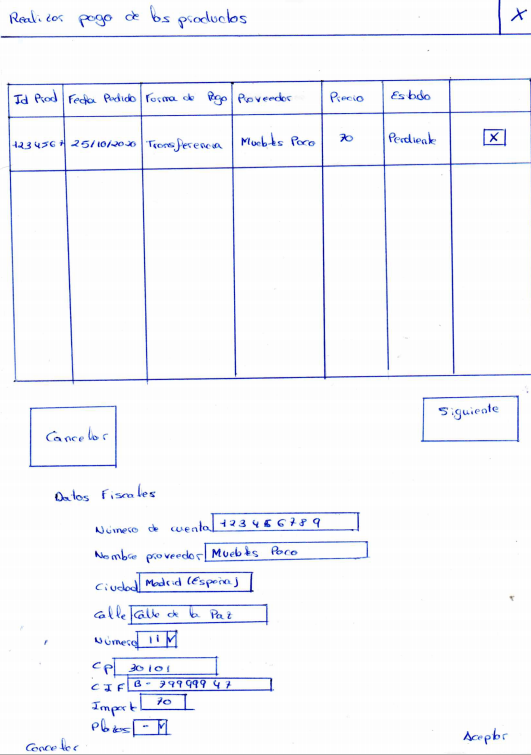 Realizar pago de los productos X
Id Prod Fecha Pedido Forma de Pago Proveedor Precio Estado
1234567 25/10/2020 Transferencia Muebles Paco 70 Pendiente X
Cancelar Siguiente
Datos Fiscales
Número de cuenta 123456789
Nombre proveedor Muebles Paco
Ciudad Madrid (España)
Calle Calle de la Paz
Número 11
CP 30101
CIF B-79999947
Import 70
Plazos -
Cancelar Aceptar